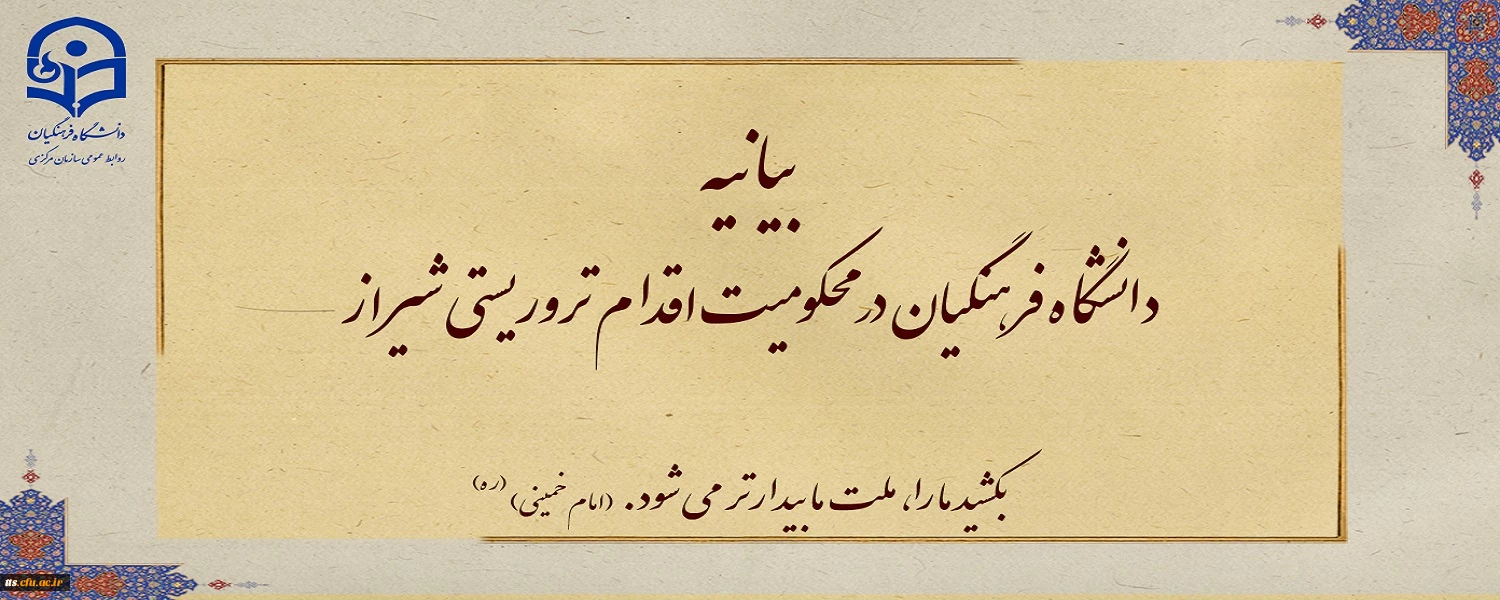 دانشگاه فرهنگیان
روابط عمومی سازمان مرکزی
بیانیه
دانشگاه فرهنگیان در محکومیت اقدام تروریستی شیراز
بکشید ما را، ملت ما بیدارتر می شود. (امام خمینی) (ره)
its.cfu.ac.ir